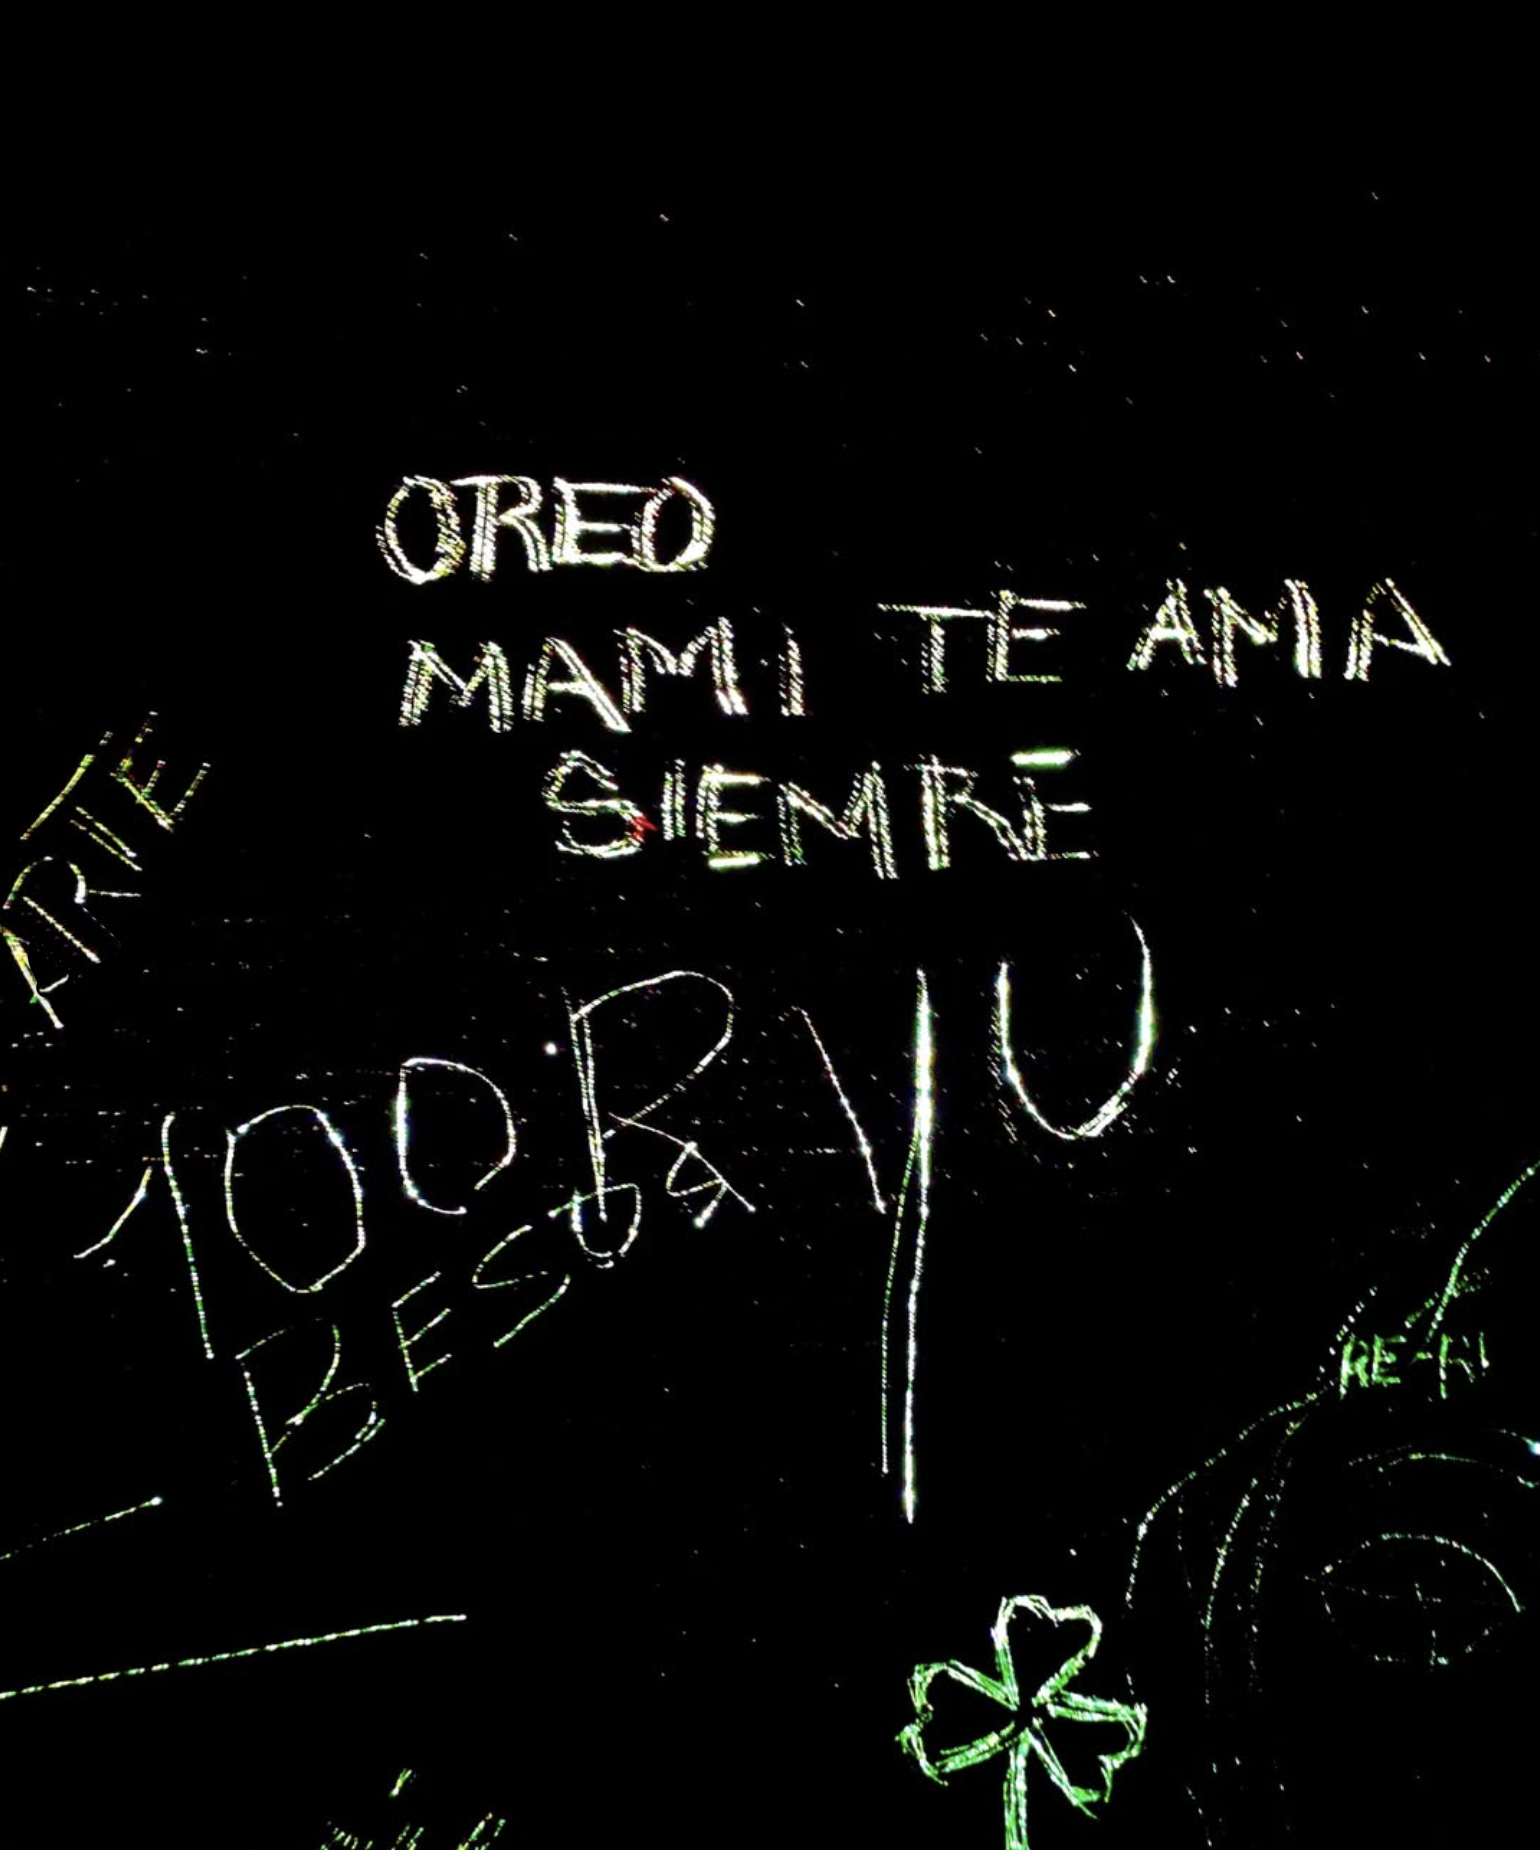 OREO
MAMI TE AMA
SIEMRE
ARTE
100
BESOS
RE-KI